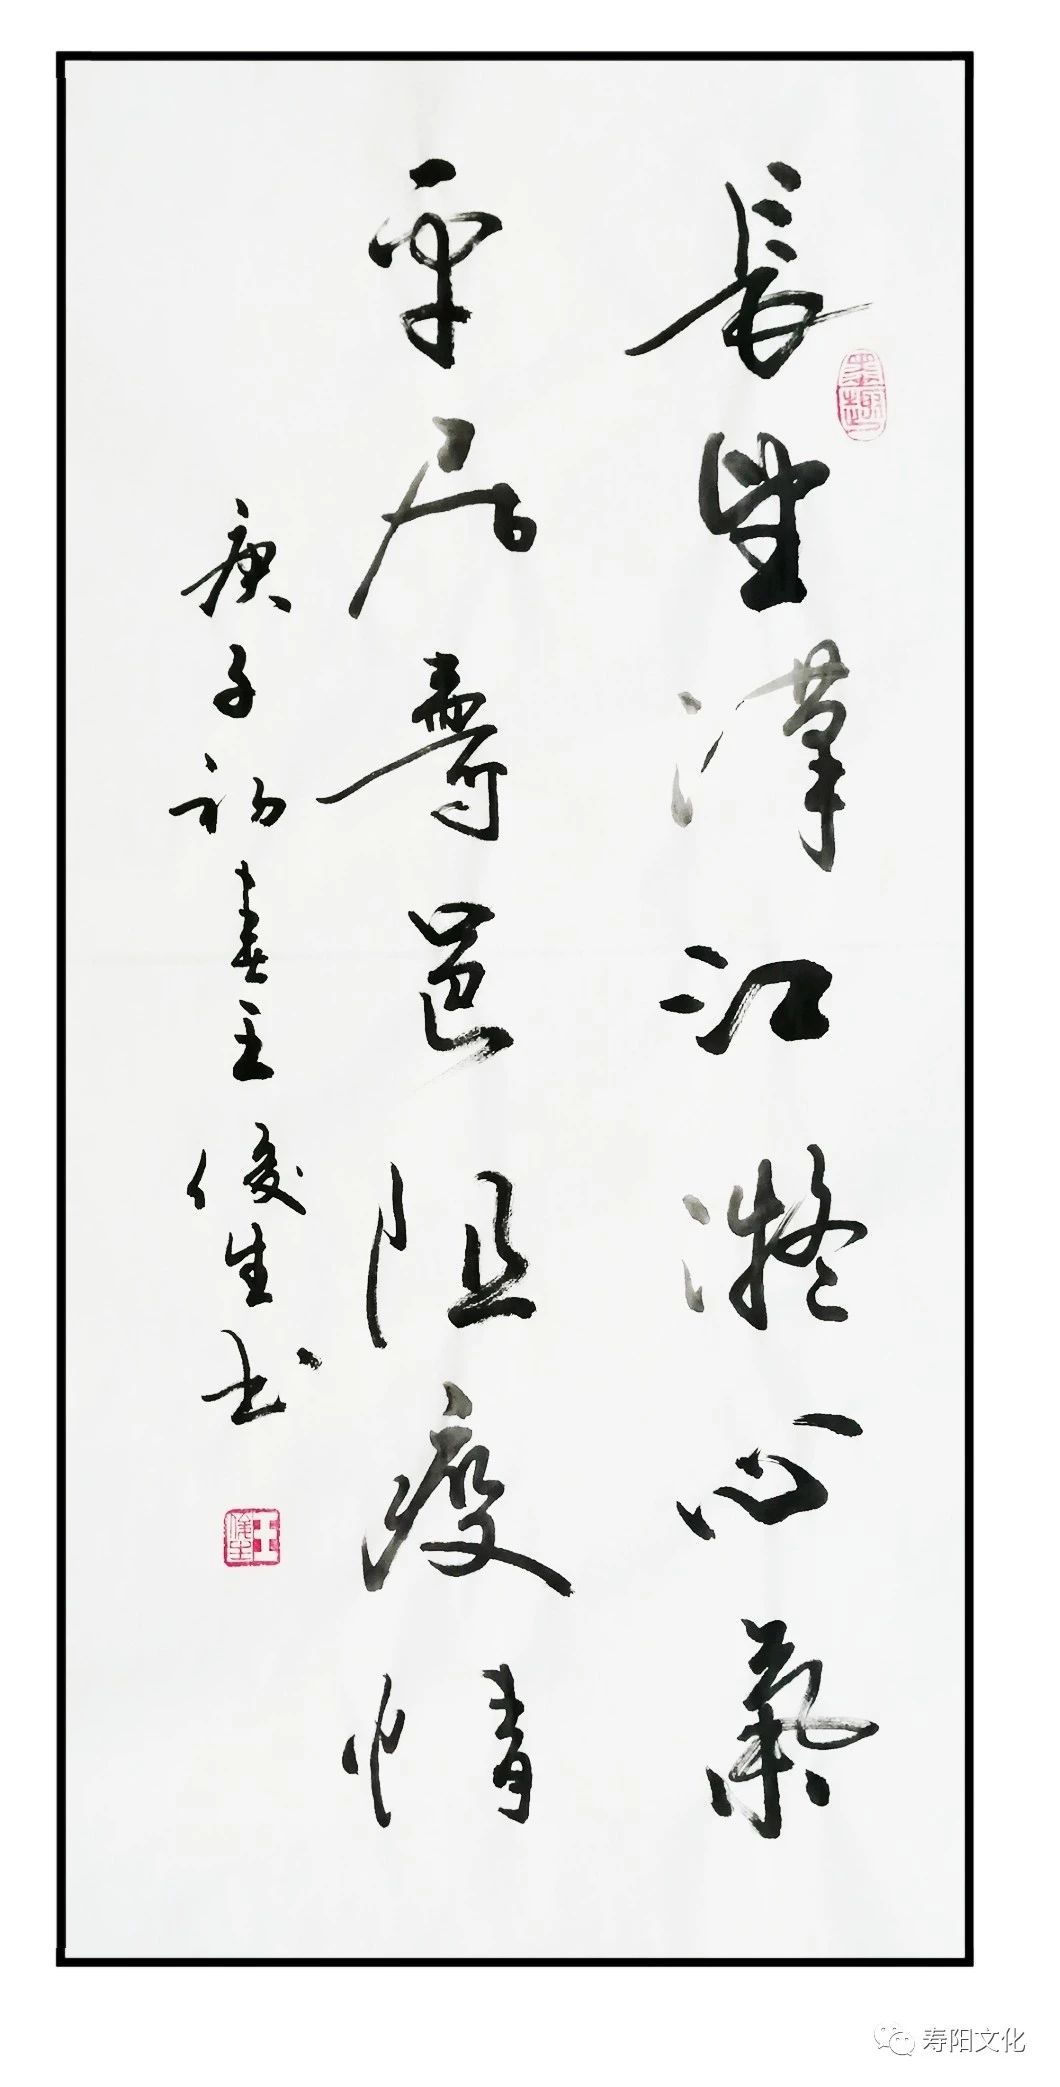 長望漢江凝心氣
墨趣
平居壽邑阻疫情
庚子初春王俊生书
王俊生
寿阳文化